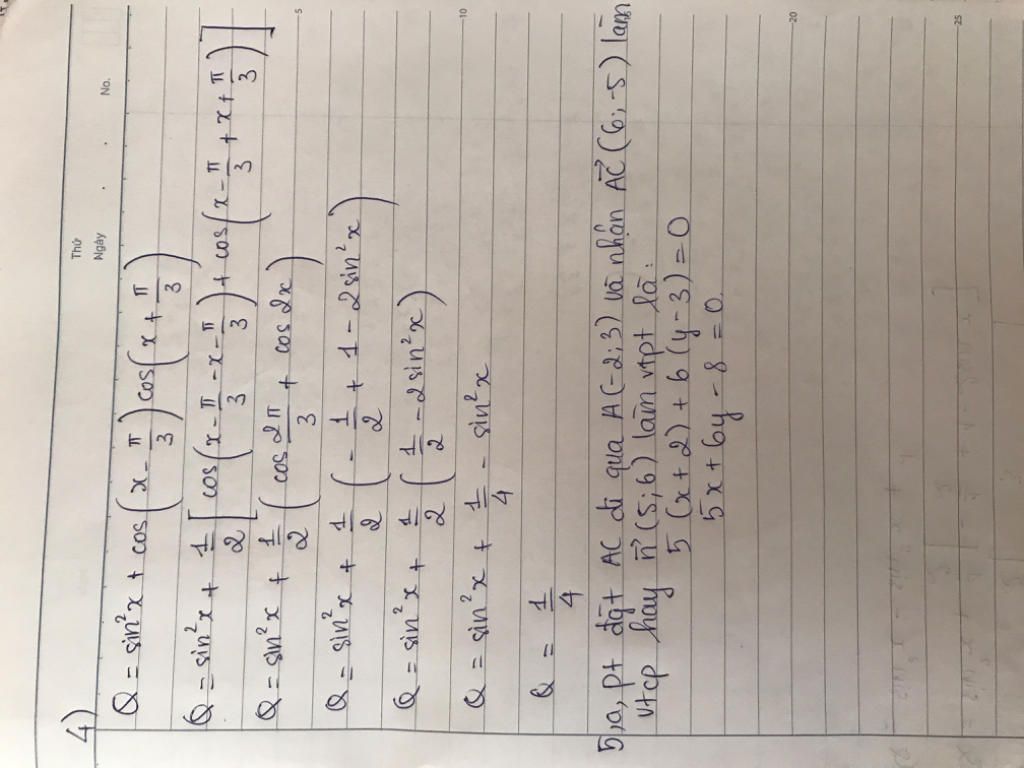 Thứ
Ngày . . No.
4)
Q = sin²x + cos(x - π/3) cos(x + π/3)
Q = sin²x + 1/2 [cos(x - π/3 - x - π/3) + cos(x - π/3 + x + π/3)]
Q = sin²x + 1/2 (cos 2π/3 + cos 2x)
Q = sin²x + 1/2 (- 1/2 + 1 - 2sin²x)
Q = sin²x + 1/2 (1/2 - 2sin²x)
Q = sin²x + 1/4 - sin²x
Q = 1/4
5, a, pt đgt AC đi qua A(-2; 3) và nhận AC⃗ (6; -5) làm
vtcp hay n⃗ (5; 6) làm vtpt là:
5(x + 2) + 6(y - 3) = 0
5x + 6y - 8 = 0
5
10
20
25